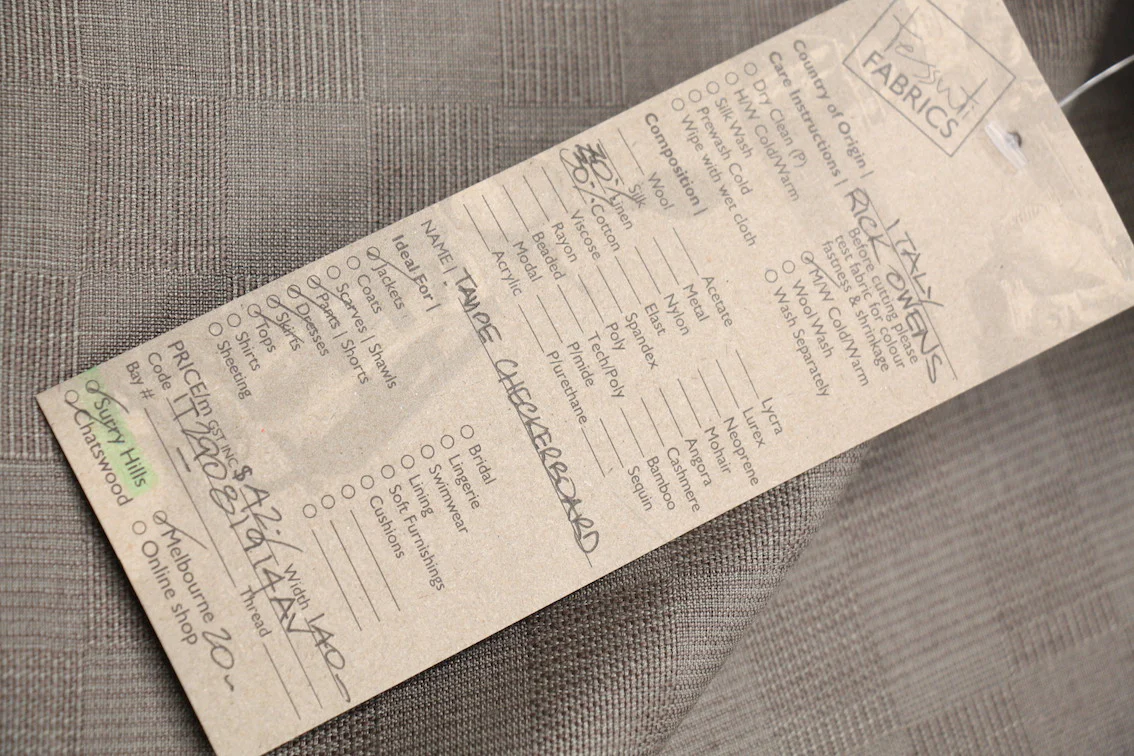 Tessuti
FABRICS
Country of Origin | ITALY
RICK OWENS
Care Instructions | Before cutting please
test fabric for colour
fastness & shrinkage
Dry Clean (P)
H/W Cold/Warm
Silk Wash
Prewash Cold
Wipe with wet cloth
M/W Cold/Warm
Wool Wash
Wash Separately
Composition |
Wool
Silk
Linen
Cotton
Viscose
Rayon
Beaded
Modal
Acrylic
Acetate
Metal
Nylon
Elast
Spandex
Poly
Tech/Poly
P/mide
P/urethane
Lycra
Lurex
Neoprene
Mohair
Angora
Cashmere
Bamboo
Sequin
NAME | TAUPE CHECKERBOARD
Ideal For |
Jackets
Coats
Scarves | Shawls
Pants | Shorts
Dresses
Skirts
Tops
Shirts
Sheeting
Bridal
Lingerie
Swimwear
Lining
Soft Furnishings
Cushions
PRICE/m GST INC $ Width 140
Code |
Bay # Thread
Surry Hills
Chatswood
Melbourne 20
Online shop